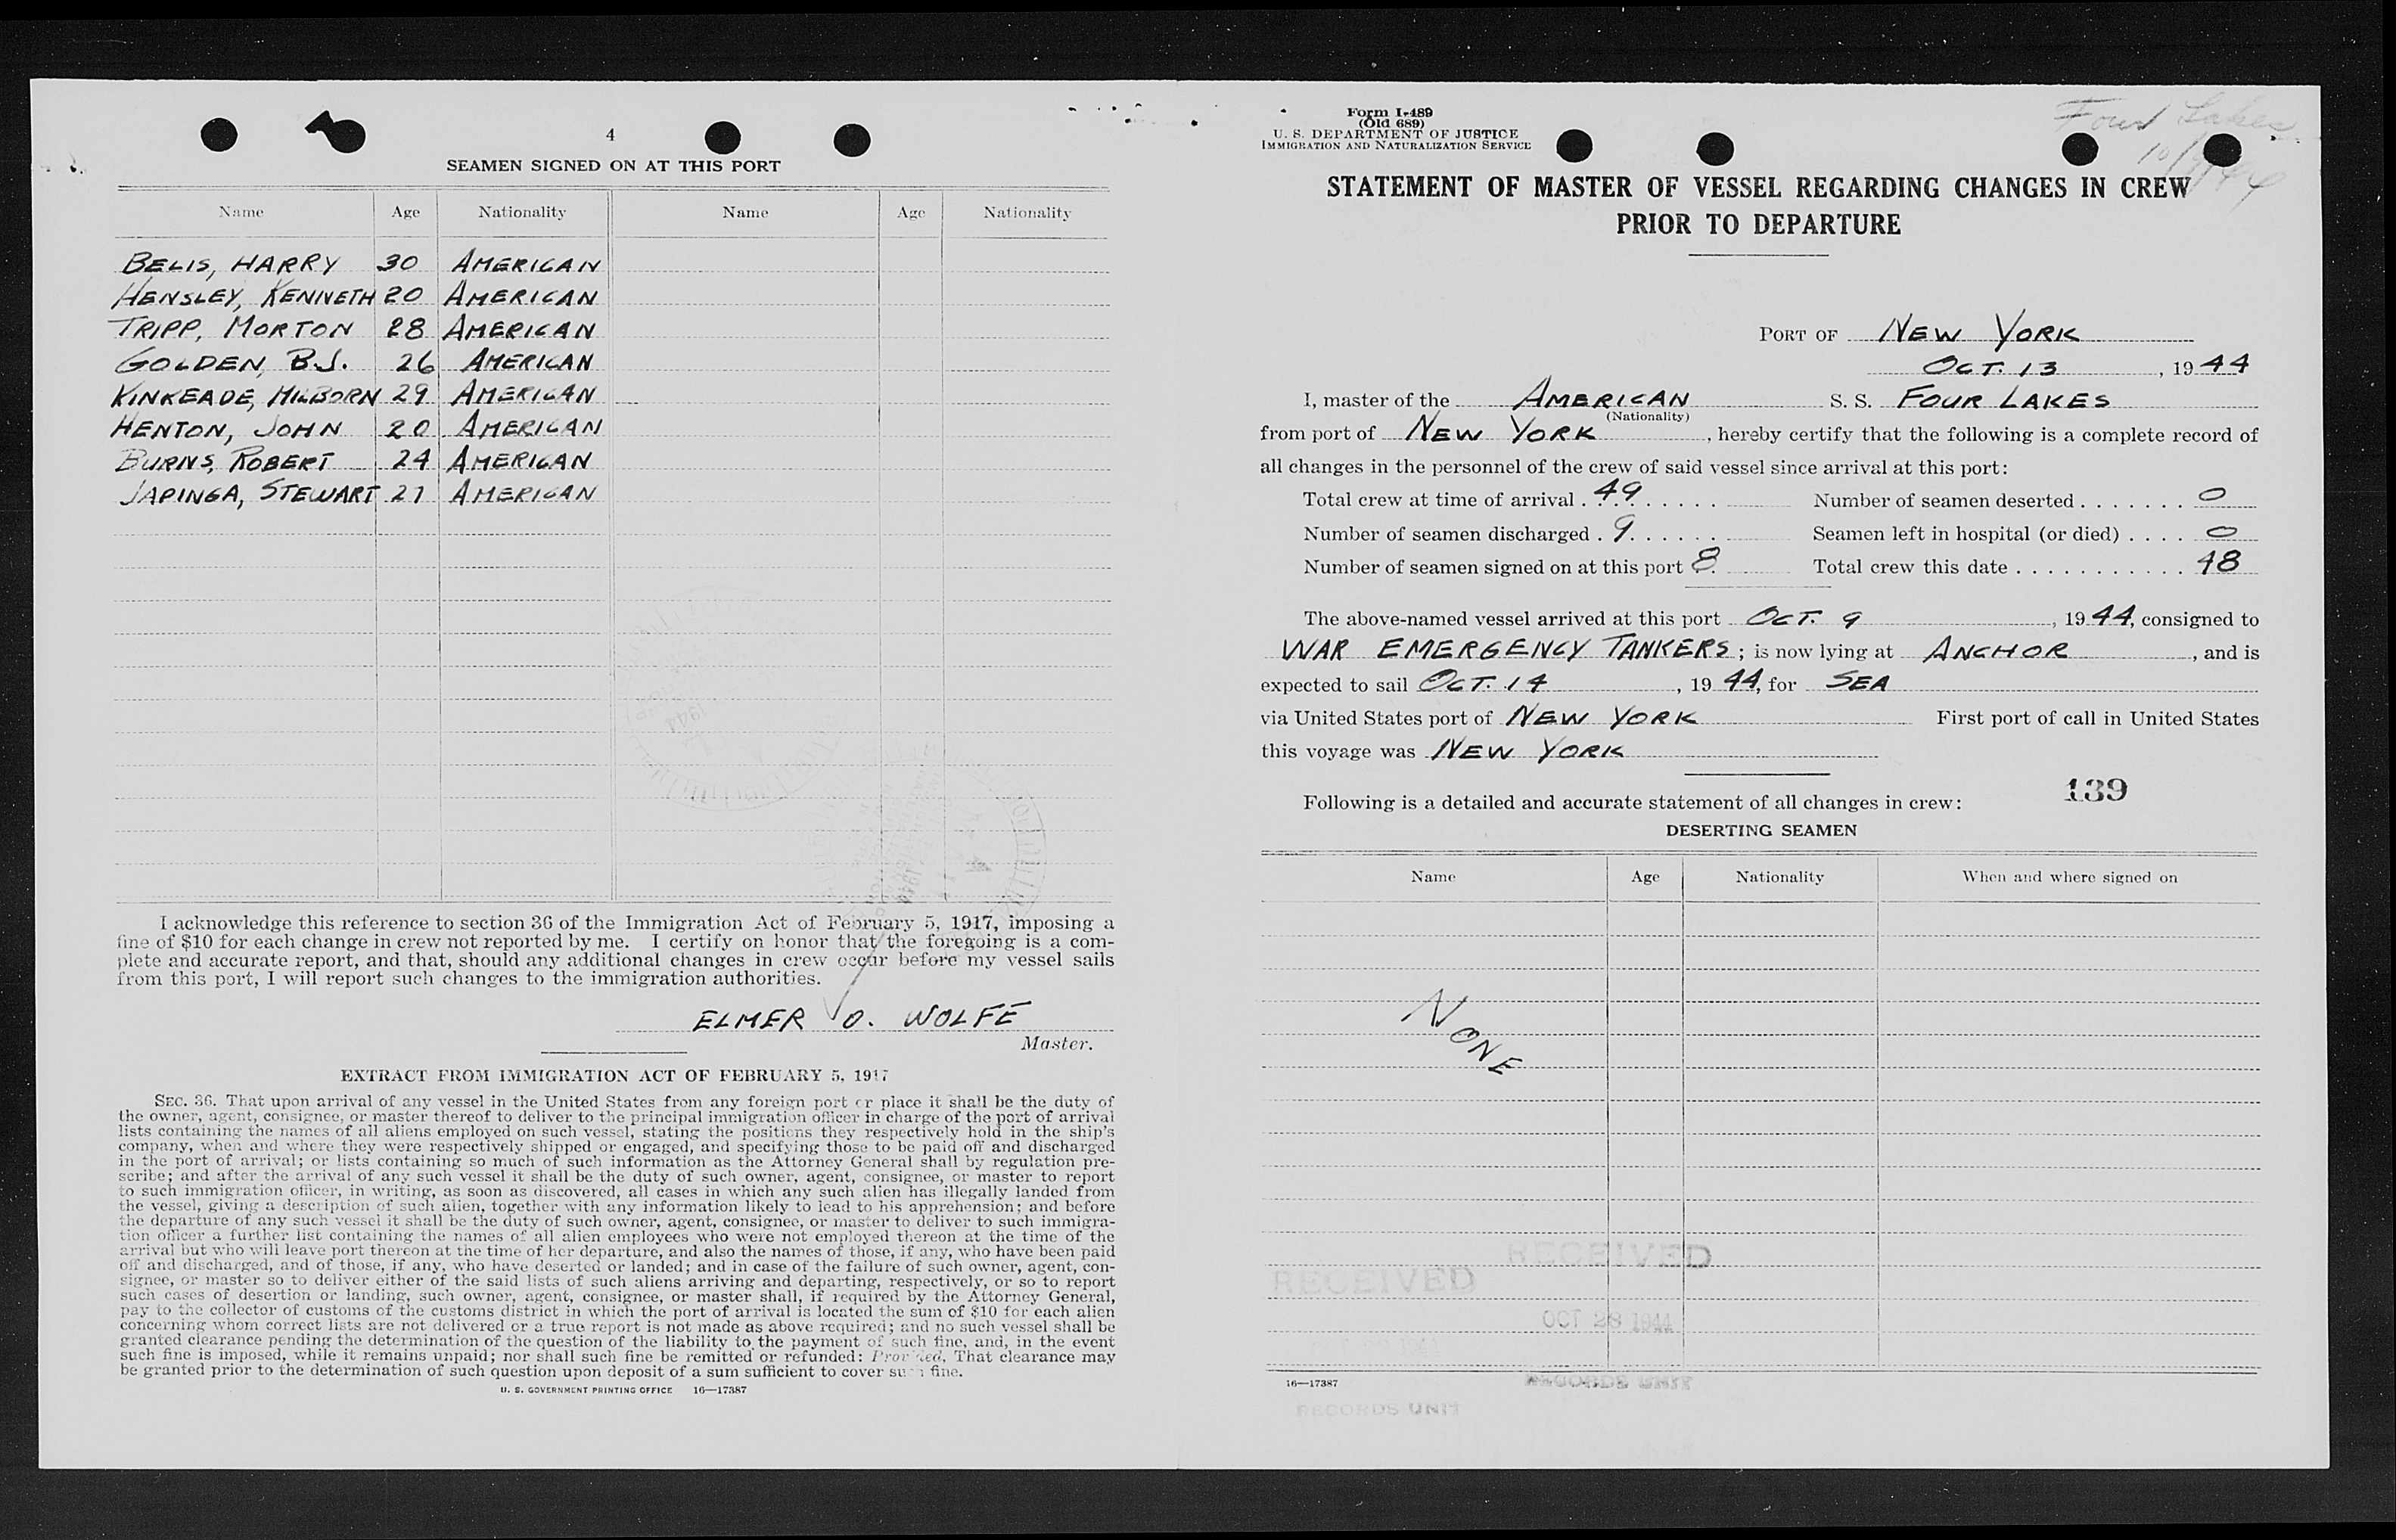 4
SEAMEN SIGNED ON AT THIS PORT
Name Age Nationality Name Age Nationality
BELIS, HARRY 30 AMERICAN
HENSLEY, KENNETH 20 AMERICAN
TRIPP, MORTON 28 AMERICAN
GOLDEN, B.J. 26 AMERICAN
KINKEADE, HILBORN 29 AMERICAN
HENTON, JOHN 20 AMERICAN
BURNS, ROBERT 24 AMERICAN
JAPINGA, STEWART 27 AMERICAN
I acknowledge this reference to section 36 of the Immigration Act of February 5, 1917, imposing a
fine of $10 for each change in crew not reported by me. I certify on honor that the foregoing is a com-
plete and accurate report, and that, should any additional changes in crew occur before my vessel sails
from this port, I will report such changes to the immigration authorities.
ELMER O. WOLFE
Master.
EXTRACT FROM IMMIGRATION ACT OF FEBRUARY 5, 1917
SEC. 36. That upon arrival of any vessel in the United States from any foreign port or place it shall be the duty of
the owner, agent, consignee, or master thereof to deliver to the principal immigration officer in charge of the port of arrival
lists containing the names of all aliens employed on such vessel, stating the positions they respectively hold in the ship's
company, when and where they were respectively shipped or engaged, and specifying those to be paid off and discharged
in the port of arrival; or lists containing so much of such information as the Attorney General shall by regulation pre-
scribe; and after the arrival of any such vessel it shall be the duty of such owner, agent, consignee, or master to report
to such immigration officer, in writing, as soon as discovered, all cases in which any such alien has illegally landed from
the vessel, giving a description of such alien, together with any information likely to lead to his apprehension; and before
the departure of any such vessel it shall be the duty of such owner, agent, consignee, or master to deliver to such immigra-
tion officer a further list containing the names of all alien employees who were not employed thereon at the time of the
arrival but who will leave port thereon at the time of her departure, and also the names of those, if any, who have been paid
off and discharged, and of those, if any, who have deserted or landed; and in case of the failure of such owner, agent, con-
signee, or master so to deliver either of the said lists of such aliens arriving and departing, respectively, or so to report
such cases of desertion or landing, such owner, agent, consignee, or master shall, if required by the Attorney General,
pay to the collector of customs of the customs district in which the port of arrival is located the sum of $10 for each alien
concerning whom correct lists are not delivered or a true report is not made as above required; and no such vessel shall be
granted clearance pending the determination of the question of the liability to the payment of such fine, and, in the event
such fine is imposed, while it remains unpaid; nor shall such fine be remitted or refunded: Provided, That clearance may
be granted prior to the determination of such question upon deposit of a sum sufficient to cover such fine.
U. S. GOVERNMENT PRINTING OFFICE 16—17387
Form I-489
(Old 689)
U. S. DEPARTMENT OF JUSTICE
IMMIGRATION AND NATURALIZATION SERVICE
Four Lakes
STATEMENT OF MASTER OF VESSEL REGARDING CHANGES IN CREW
PRIOR TO DEPARTURE
PORT OF NEW YORK
OCT. 13, 1944
I, master of the AMERICAN S. S. FOUR LAKES
(Nationality)
from port of NEW YORK, hereby certify that the following is a complete record of
all changes in the personnel of the crew of said vessel since arrival at this port:
Total crew at time of arrival . 49 . . . . . . Number of seamen deserted . . . . . . . 0
Number of seamen discharged . 9 . . . . . . Seamen left in hospital (or died) . . . . 0
Number of seamen signed on at this port 8 Total crew this date . . . . . . . . . . . 48
The above-named vessel arrived at this port OCT. 9, 1944, consigned to
WAR EMERGENCY TANKERS; is now lying at ANCHOR, and is
expected to sail OCT. 14, 1944, for SEA
via United States port of NEW YORK First port of call in United States
this voyage was NEW YORK
139
Following is a detailed and accurate statement of all changes in crew:
DESERTING SEAMEN
Name Age Nationality When and where signed on
NONE
RECEIVED
RECEIVED
OCT 28 1944
16—17387
RECORDS UNIT
RECORDS UNIT